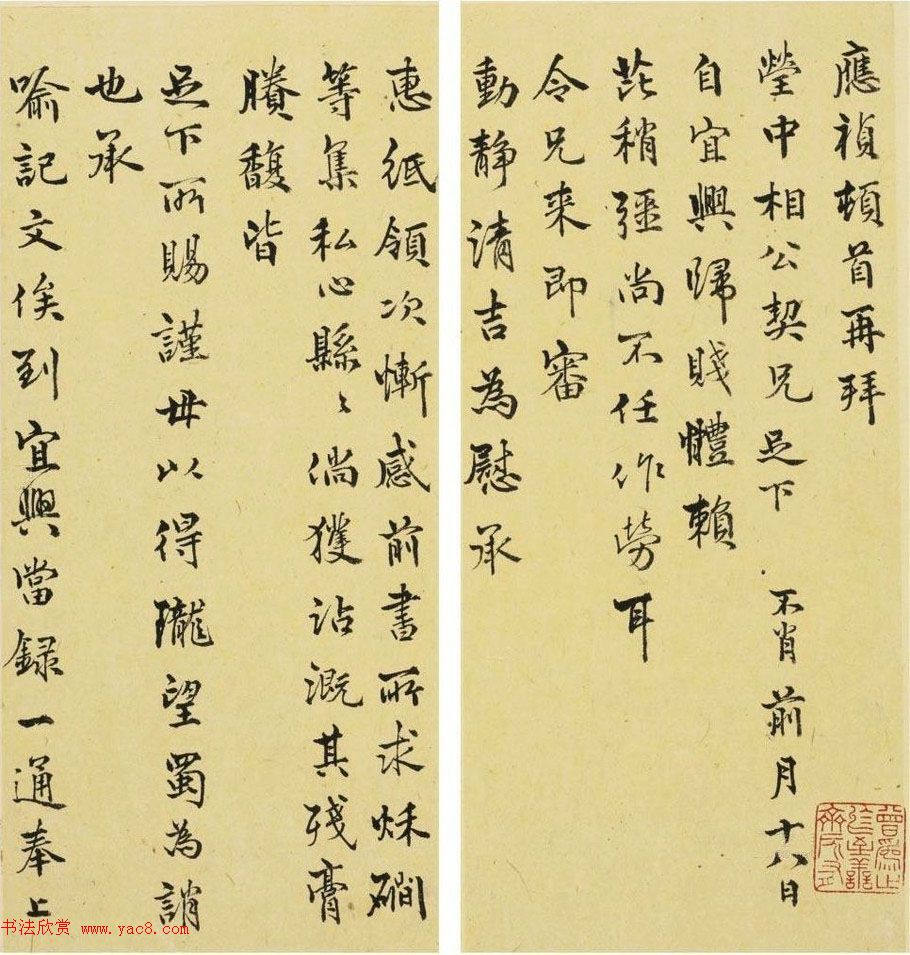 應禎頓首再拜
瑩中相公契兄足下 不肖前月十八日
自宜興歸賤體賴
芘稍彊尚不任作勞耳
令兄来即審
動靜清吉為慰承
惠紙領次慚感前書所求秌磵
等集私心縣〻倘獲沾溉其殘膏
賸馥皆
足下所賜謹毋以得隴望蜀為誚
也承
喻記文俟到宜興當録一通奉上
书法欣赏 www.yac8.com